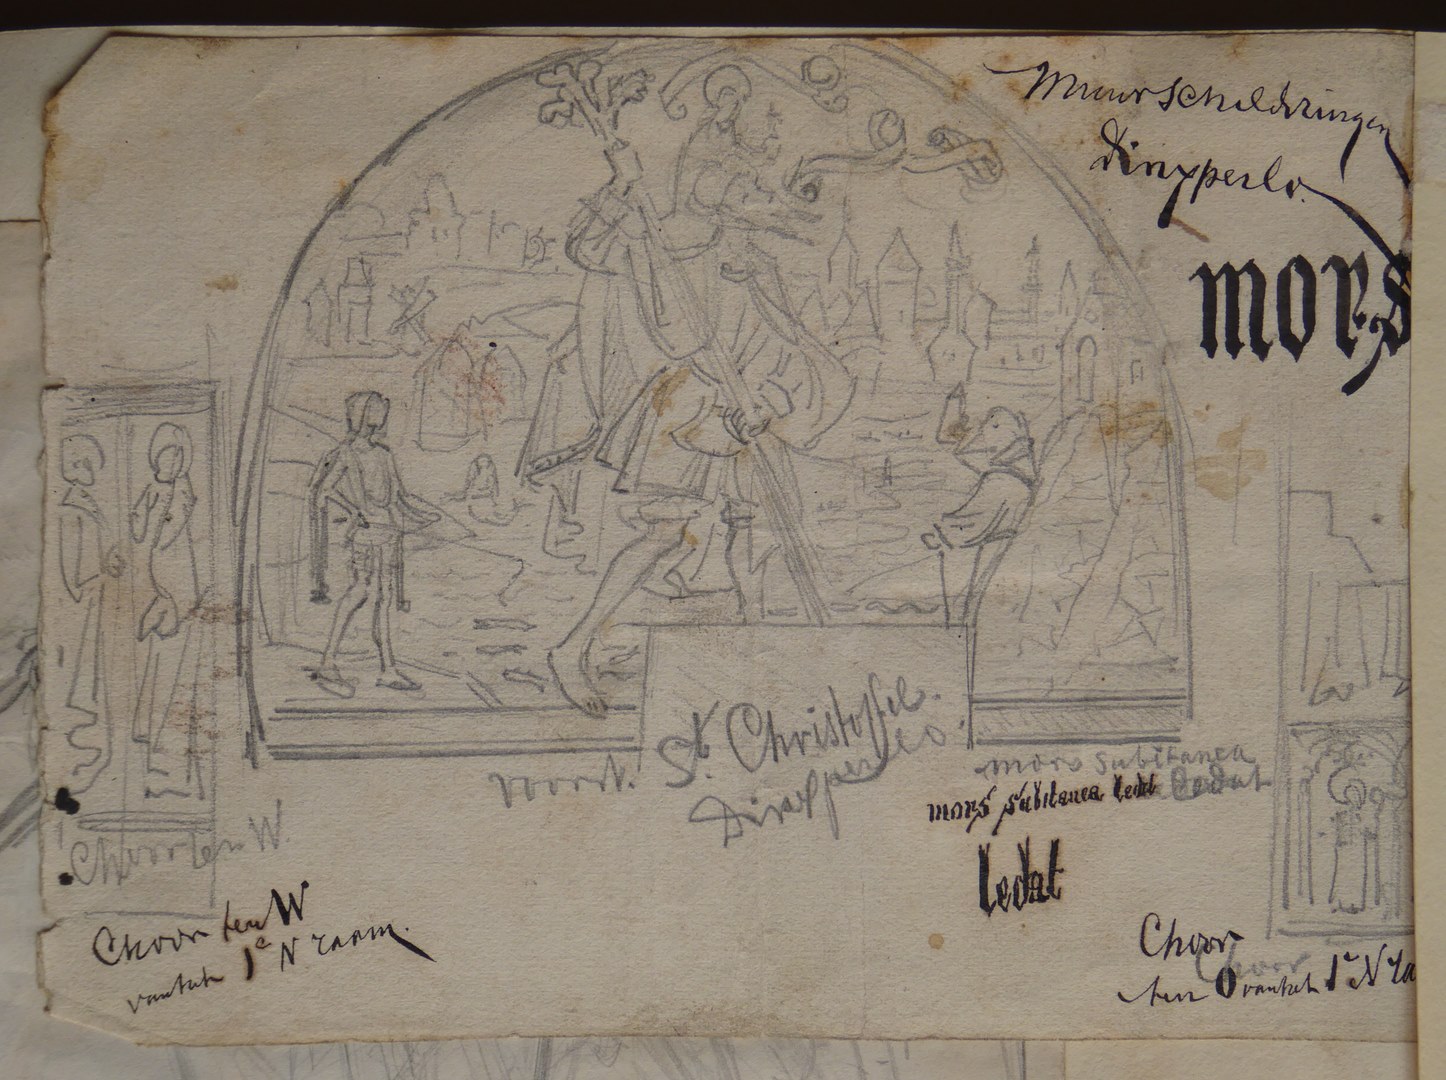 Muurschilderingen
Dinxperlo.
mors
voorst. St Christoffel.
Dinxperlo.
mors subitanea
ledat
mors subitanea ledat
ledat
Choor ten W.
Choor ten W
van het 1e N raam
Choor
Choor
ten O van het 1e N ra